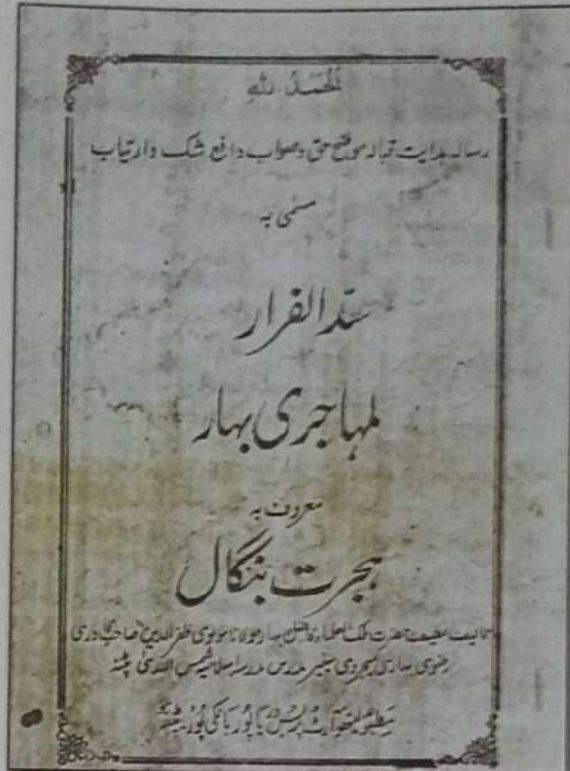 الحمد للہ
رسالہ ہدایت قبالہ موضح حق و صواب دافع شک و ارتیاب
مسمی بہ
سد الفرار
لمہاجری بہار
معروف بہ
ہجرت بنگال
تالیف لطیف حضرت ملک العلماء فاضل بہار مولانا مولوی ظفر الدین صاحب قادری
رضوی بہاری میجروی سینیر مدرس مدرسہ اسلامیہ شمس الہدیٰ پٹنہ
مطبوعہ لیتھو آرٹ پریس بانکی پور پٹنہ